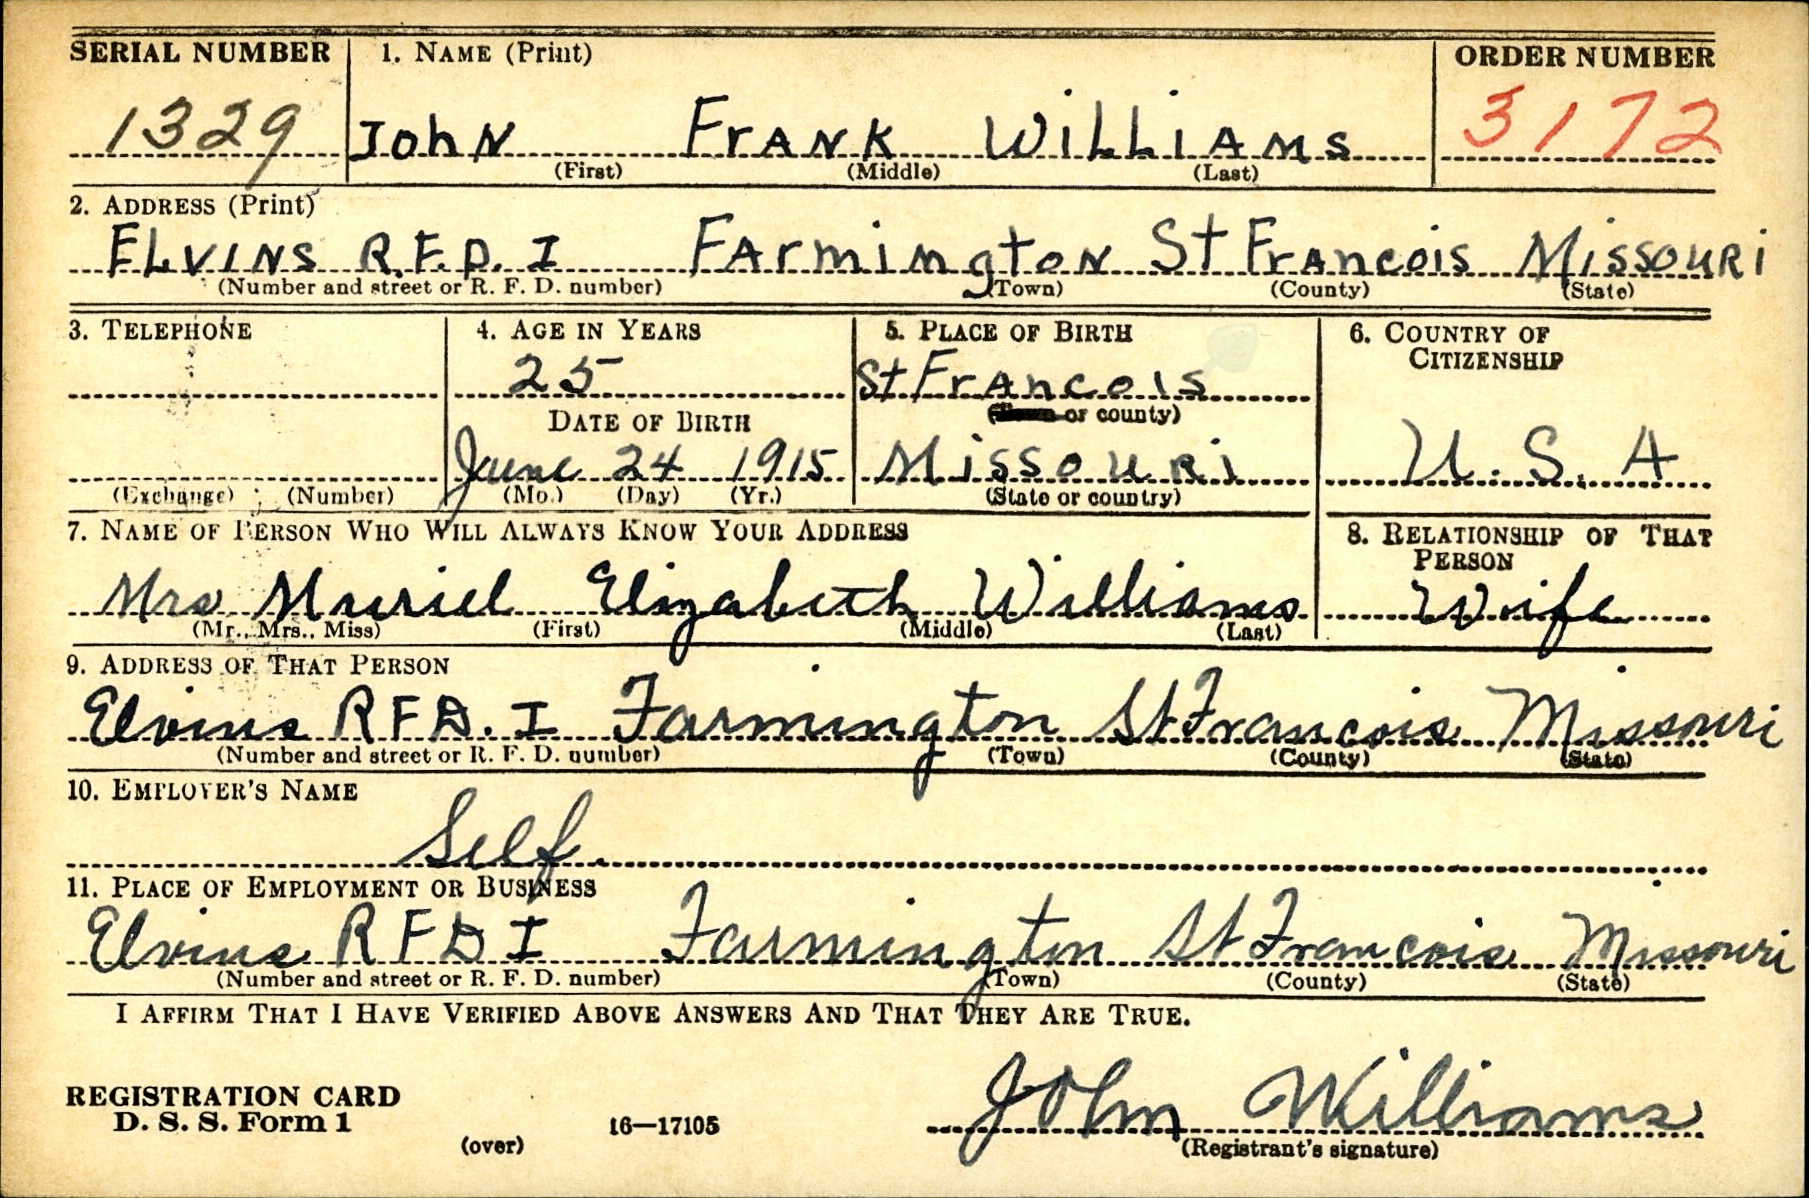 SERIAL NUMBER 1. NAME (Print) ORDER NUMBER
1329 JOHN FRANK WILLIAMS 3172
(First) (Middle) (Last)
2. ADDRESS (Print)
ELVINS R.F.D. I FARMINGTON St FRANCOIS MISSOURI
(Number and street or R. F. D. number) (Town) (County) (State)
3. TELEPHONE 4. AGE IN YEARS 5. PLACE OF BIRTH 6. COUNTRY OF CITIZENSHIP
25 St FRANCOIS
DATE OF BIRTH (Town or county)
June 24 1915 MISSOURI U.S.A
(Exchange) (Number) (Mo.) (Day) (Yr.) (State or country)
7. NAME OF PERSON WHO WILL ALWAYS KNOW YOUR ADDRESS 8. RELATIONSHIP OF THAT PERSON
Mrs Muriel Elizabeth Williams Wife
(Mr., Mrs., Miss) (First) (Middle) (Last)
9. ADDRESS OF THAT PERSON
Elvins R F D. I Farmington St Francois Missouri
(Number and street or R. F. D. number) (Town) (County) (State)
10. EMPLOYER'S NAME
Self.
11. PLACE OF EMPLOYMENT OR BUSINESS
Elvins R F D I Farmington St Francois Missouri
(Number and street or R. F. D. number) (Town) (County) (State)
I AFFIRM THAT I HAVE VERIFIED ABOVE ANSWERS AND THAT THEY ARE TRUE.
John Williams
REGISTRATION CARD
D. S. S. Form 1 16—17105
(over) (Registrant's signature)